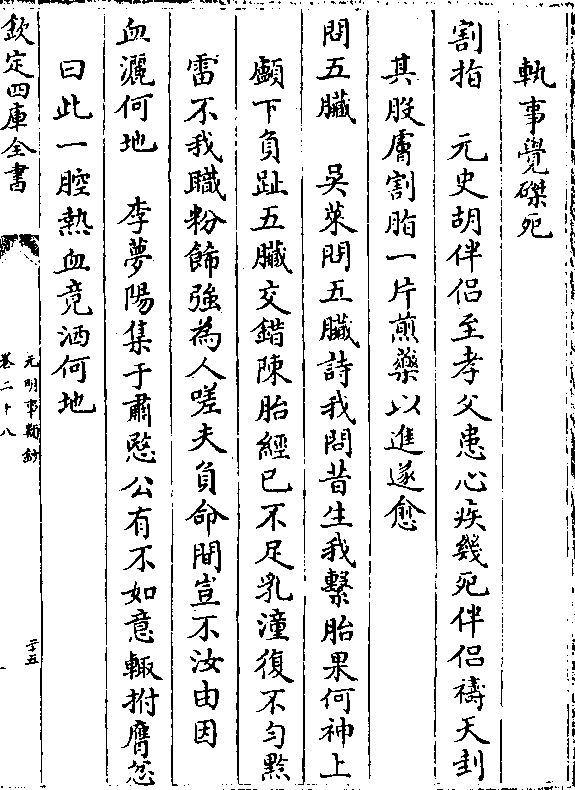 執事覺磔死
割指　元史胡伴侶至孝父患心疾幾死伴侶禱天刲
其股膚割脂一片煎藥以進遂愈
問五臟　吳萊問五臟詩我問昔生我繫胎果何神上
顱下負趾五臟交錯陳胎經已不足乳湩復不勻黔
雷不我職粉飾強為人嗟夫負命間豈不汝由因
血灑何地　李夢陽集于肅愍公有不如意輒拊膺忿
曰此一腔熱血竟洒何地
欽定四庫全書
元明事類鈔
卷二十八
二十五